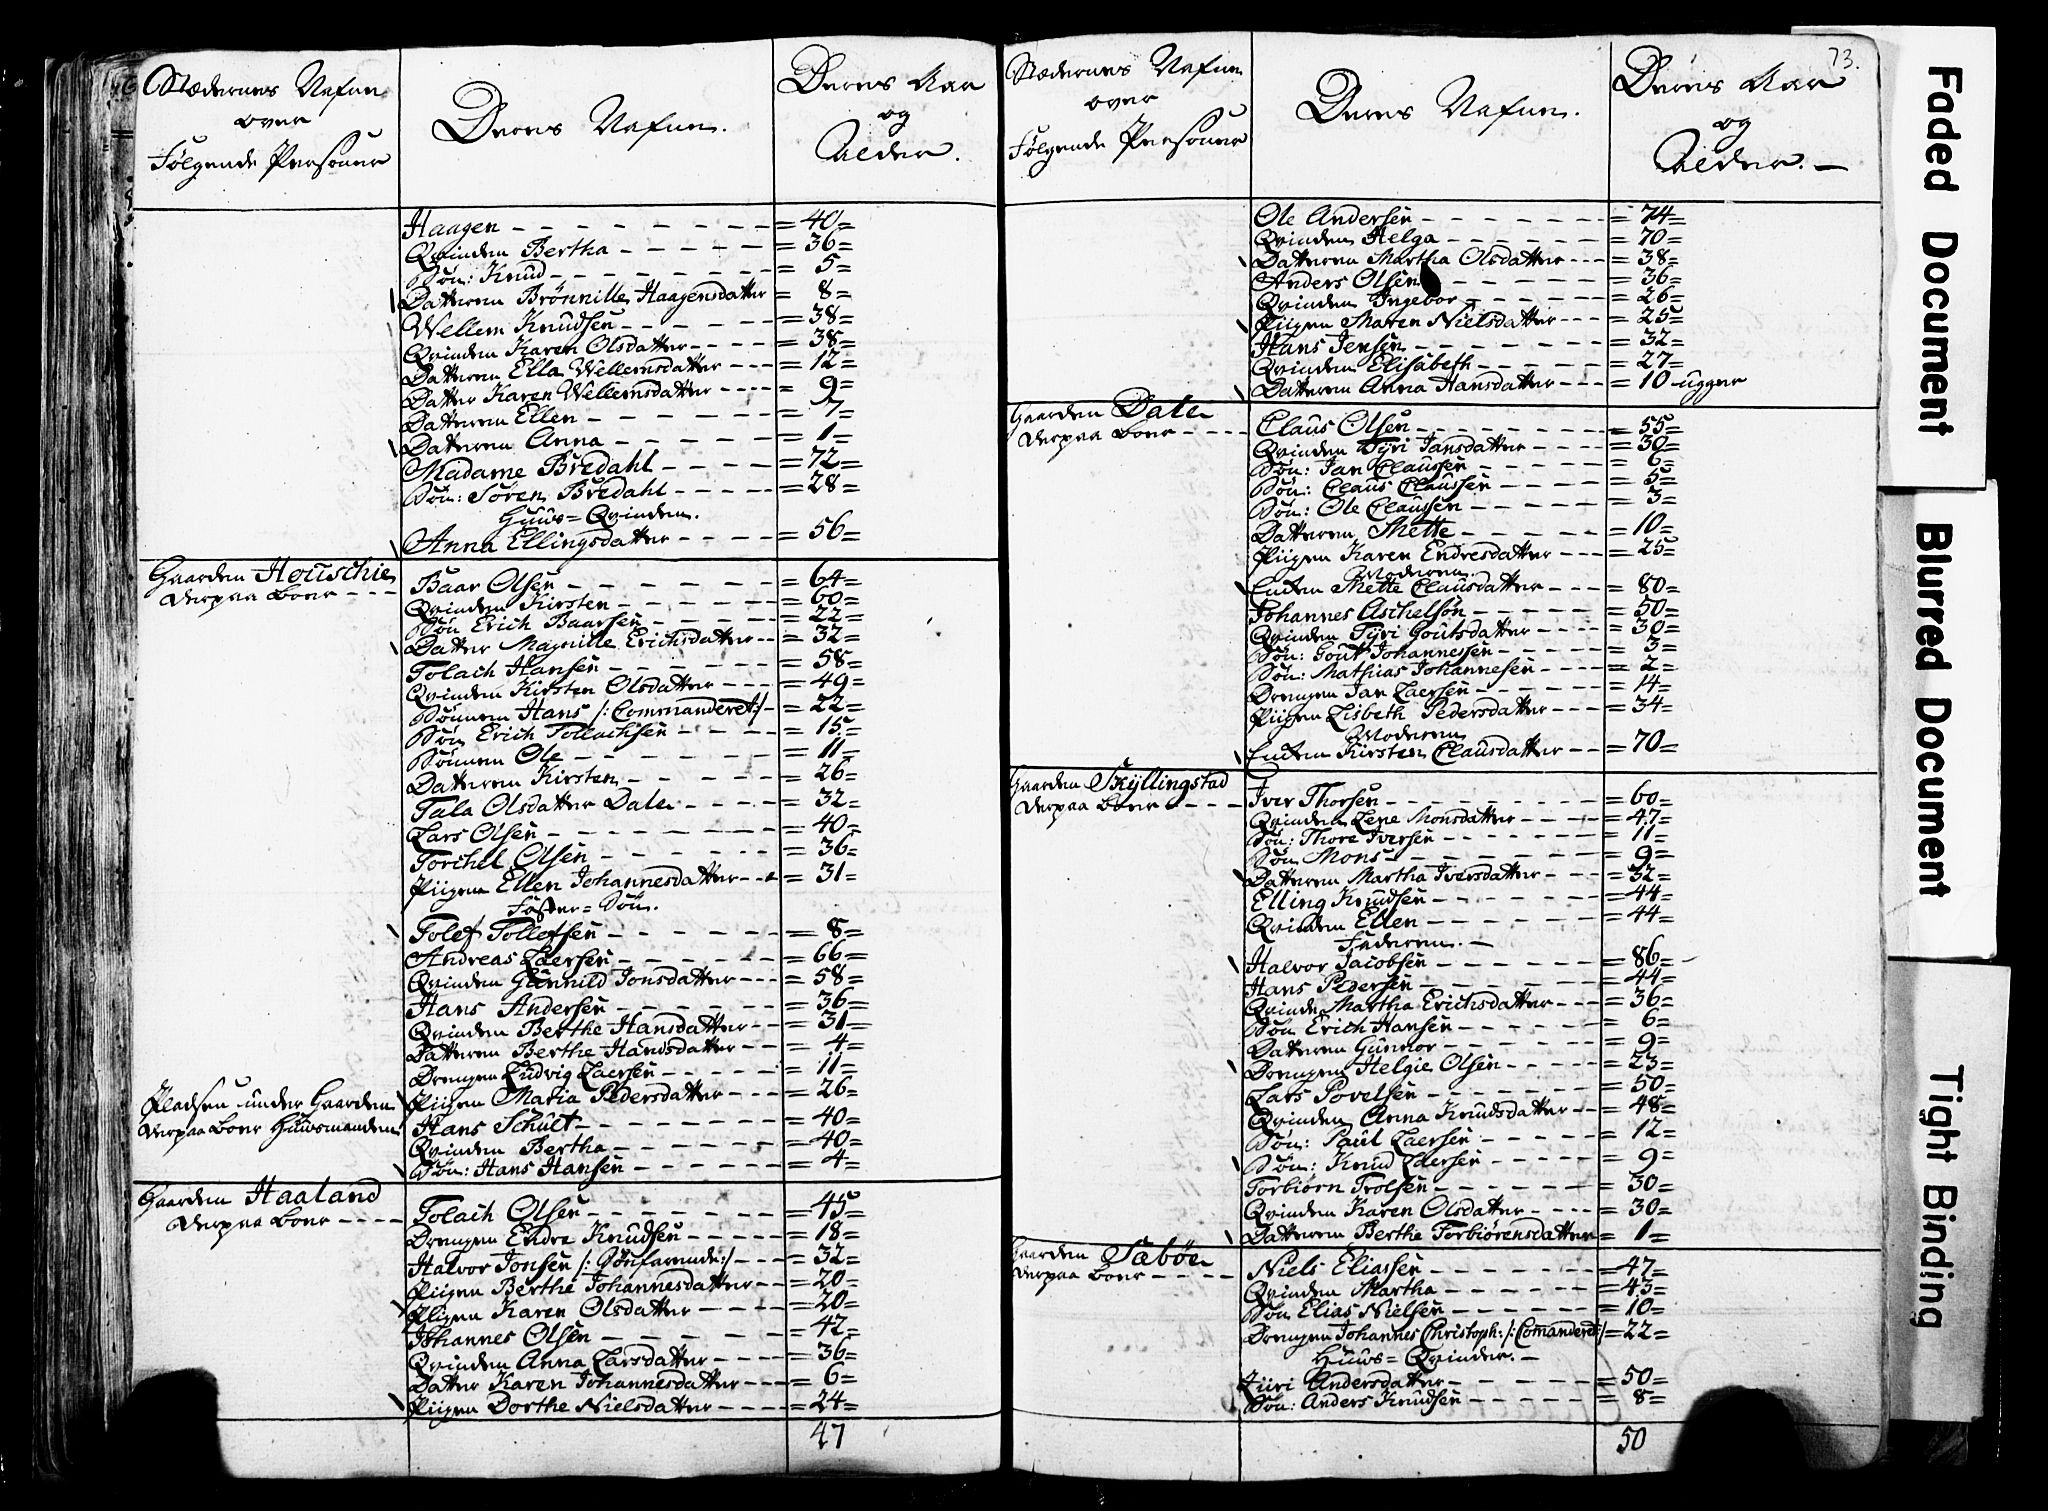 Stædernes Nafne
over
Følgende Personer
Deres Nafne.
Deres Aar
og
Alder.
Haagen - - - = 40 =
Qvinden Bertha - - - = 36 =
Søn: Knud - - - = 5 =
Datteren Brönnille Haagensdatter = 8 =
Wellem Knudsen - - - = 38 =
Qvinden Karen Olsdatter - - - = 38 =
Datteren Ella Wellemsdatter - - - = 12 =
Datter Karen Wellemsdatter - - - = 9 =
Datteren Ellen - - - = 7 =
Datteren Anna - - - = 1 =
Madame Bredahl - - - = 72 =
Søn: Søren Bredahl - - - = 28 =
Huus = Qvinden.
Anna Ellingsdatter - - - = 56 =
Gaarden Houschie
Derpaa boer - - -
Baar Olsen - - - = 64 =
Qvinden Kirsten - - - = 60 =
Søn Erich Baarsen - - - = 22 =
Datter Magnille Erichsdatter - - = 32 =
Tolach Hansen - - - = 58 =
Qvinden Kirsten Olsdatter - - - = 49 =
Sønnen Hans /: Commanderet :/ - = 22 =
Søn Erich Tollachsen - - - = 15 =
Sønnen Ole - - - = 11 =
Datteren Kirsten - - - = 26 =
Tala Olsdatter Dale - - - = 32 =
Lars Olsen - - - = 40 =
Torchel Olsen - - - = 36 =
Piigen Ellen Johannesdatter - - - = 31 =
Foster = Søn.
Tolef Tollefsen - - - = 8 =
Andreas Laersen - - - = 66 =
Qvinden Gunnild Jonsdatter - - - = 58 =
Hans Andersen - - - = 36 =
Qvinden Berthe Hansdatter - - = 31 =
Datteren Berthe Handsdatter - - = 4 =
Drengen Ludvig Laersen - - - = 11 =
Piigen Maria Pedersdatter - - - = 26 =
Pladsen under Gaarden
Derpaa boer Huusmanden
Hans Schult - - - = 40 =
Qvinden Bertha - - - = 40 =
Søn: Hans Hansen - - - = 4 =
Gaarden Haaland
Derpaa boer - - - -
Tolach Olsen - - - = 45 =
Drengen Endre Knudsen - - - = 18 =
Halvor Jonsen /: Søefarende :/ - - - = 32 =
Piigen Berthe Johannesdatter - - - = 20 =
Piigen Karen Olsdatter - - - = 20 =
Johannes Olsen - - - = 42 =
Qvinden Anna Larsdatter - - - = 36 =
Datter Karen Johannesdatter - - - = 6 =
Piigen Dorthe Nielsdatter - - - = 24 =
47
73.
Stædernes Nafne
over
Følgende Personer
Deres Nafne.
Deres Aar
og
Alder. -
Ole Andersen - - - = 74 =
Qvinden Helga - - - = 70 =
Datteren Martha Olsdatter - - - = 38 =
Anders Olsen - - - = 36 =
Qvinden Ingebor - - - = 26 =
Piigen Maren Nielsdatter - - - = 25 =
Hans Jensen - - - = 32 =
Qvinden Elisabeth - - - = 27 =
Datteren Anna Hansdatter - - - = 10 - ugger
Gaarden Dale
Derpaa boer - - - -
Claus Olsen - - - = 55 =
Qvinden Tyri Jansdatter - - - = 30 =
Søn: Jan Claussen - - - = 6 =
Søn: Claus Claussen - - - = 5 =
Søn: Ole Claussen - - - = 3 =
Datteren Mette - - - = 10 =
Piigen Karen Endresdatter - - - = 25 =
Moderen
Enken Mette Clausdatter - - - = 80 =
Johannes Aschelsøn - - - = 50 =
Qvinden Tyri Goutsdatter - - - = 30 =
Søn: Gout Johannessen - - - = 3 =
Søn: Mathias Johannesen - - - = 2 =
Drengen Jan Laersen - - - = 14 =
Piigen Lisbeth Pedersdatter - - - = 34 =
Moderen
Enken Kirsten Clausdatter - - = 70 =
Gaarden Skyllingstad
Derpaa boer - - - -
Iver Thorsen - - - = 60 =
Qvinden Lene Monsdatter - - - = 47 =
Søn: Thore Iversen - - - = 11 =
Søn Mons - - - = 9 =
Datteren Martha Iversdatter - - - = 32 =
Elling Knudsen - - - = 44 =
Qvinden Ellen - - - = 44 =
Faderen. -
Halvor Jacobsen - - - = 86 =
Hans Pedersen - - - = 44 =
Qvinden Martha Erichsdatter - - - = 36 =
Søn Erich Hansen - - - = 6 =
Datteren Gunnor - - - = 9 =
Drengen Helgie Olsen - - - = 23 =
Lars Povelsen - - - = 50 =
Qvinden Anna Knudsdatter - - = 48 =
Søn: Paul Laersen - - - = 12 =
Søn: Knud Laersen - - - = 9 =
Torbiørn Trolsen - - - = 30 =
Qvinden Karen Olsdatter - - - = 30 =
Datteren Berthe Torbiørensdatter = 1 =
Gaarden Sæbøe
Derpaa boer - - - -
Niels Eliassen - - - = 47 =
Qvinden Martha - - - = 43 =
Søn Elias Nielsen - - - = 10 =
Drengen Johannes Christoph: /: Comanderet :/ = 22 =
Huus = Qvinder. -
Siiri Andersdatter - - - = 50 =
Søn: Anders Knudsen - - - = 8 =
50
Faded Document
Blurred Document
Tight Binding